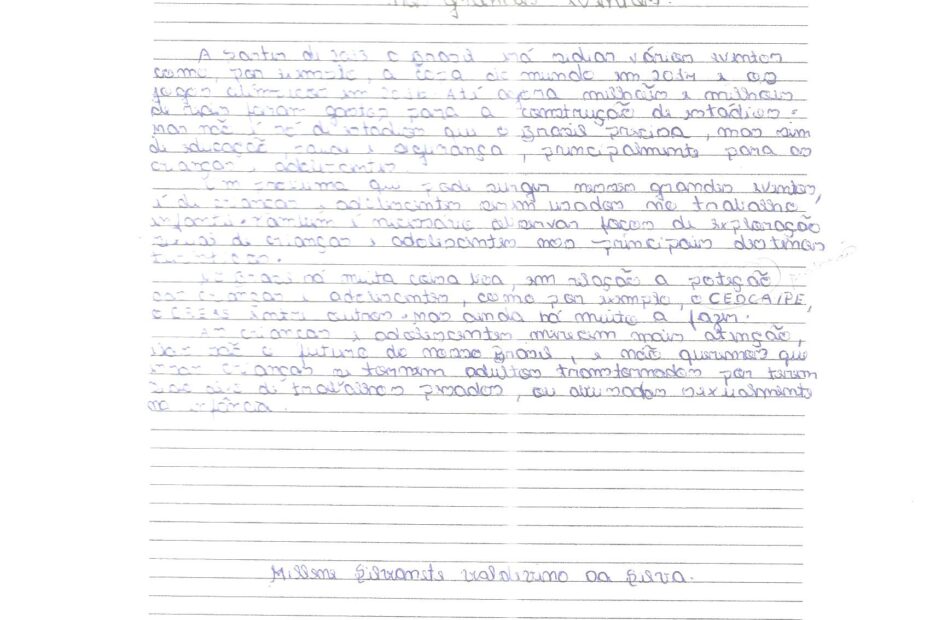 grandes eventos.
A partir de o Brasil irá sediar vários eventos
como, por exemplo, a copa do mundo em 2014 e os
jogos olímpicos em Até agora milhões e milhões
de reais foram gastos para a construção de estádios.
Mas não é só de estádios que o Brasil precisa, mas sim
de educação, e segurança, principalmente para as
crianças e adolescentes.
Um que pode surgir nesses grandes eventos,
é de crianças e adolescentes serem usados no trabalho
infantil. também é necessário observar focos de exploração
de crianças e adolescentes nos principais destinos
há muita coisa boa, em relação a poteção
das crianças e adolescentes, como por exemplo, o CEDCA/PE,
o entre outros. mas ainda há muito a fazer.
As crianças e adolescentes merecem mais atenção,
são o futuro do nosso Brasil, e não queremos que
essas crianças se tornem adultos transtornados por terem
sido de trabalhos pesados, ou abusadas sexualmente
na infância.
da Silva.